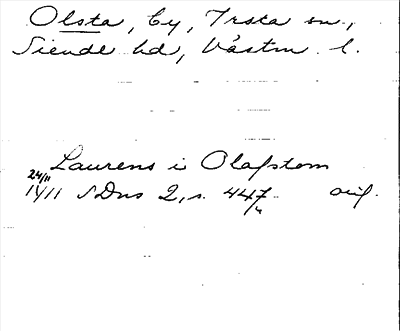 Olsta, by, Irsta sn,
Siende hd, Västm. l.
Laurens i Olafstom
24/11
1411 SDns 2, s. 447 orig.